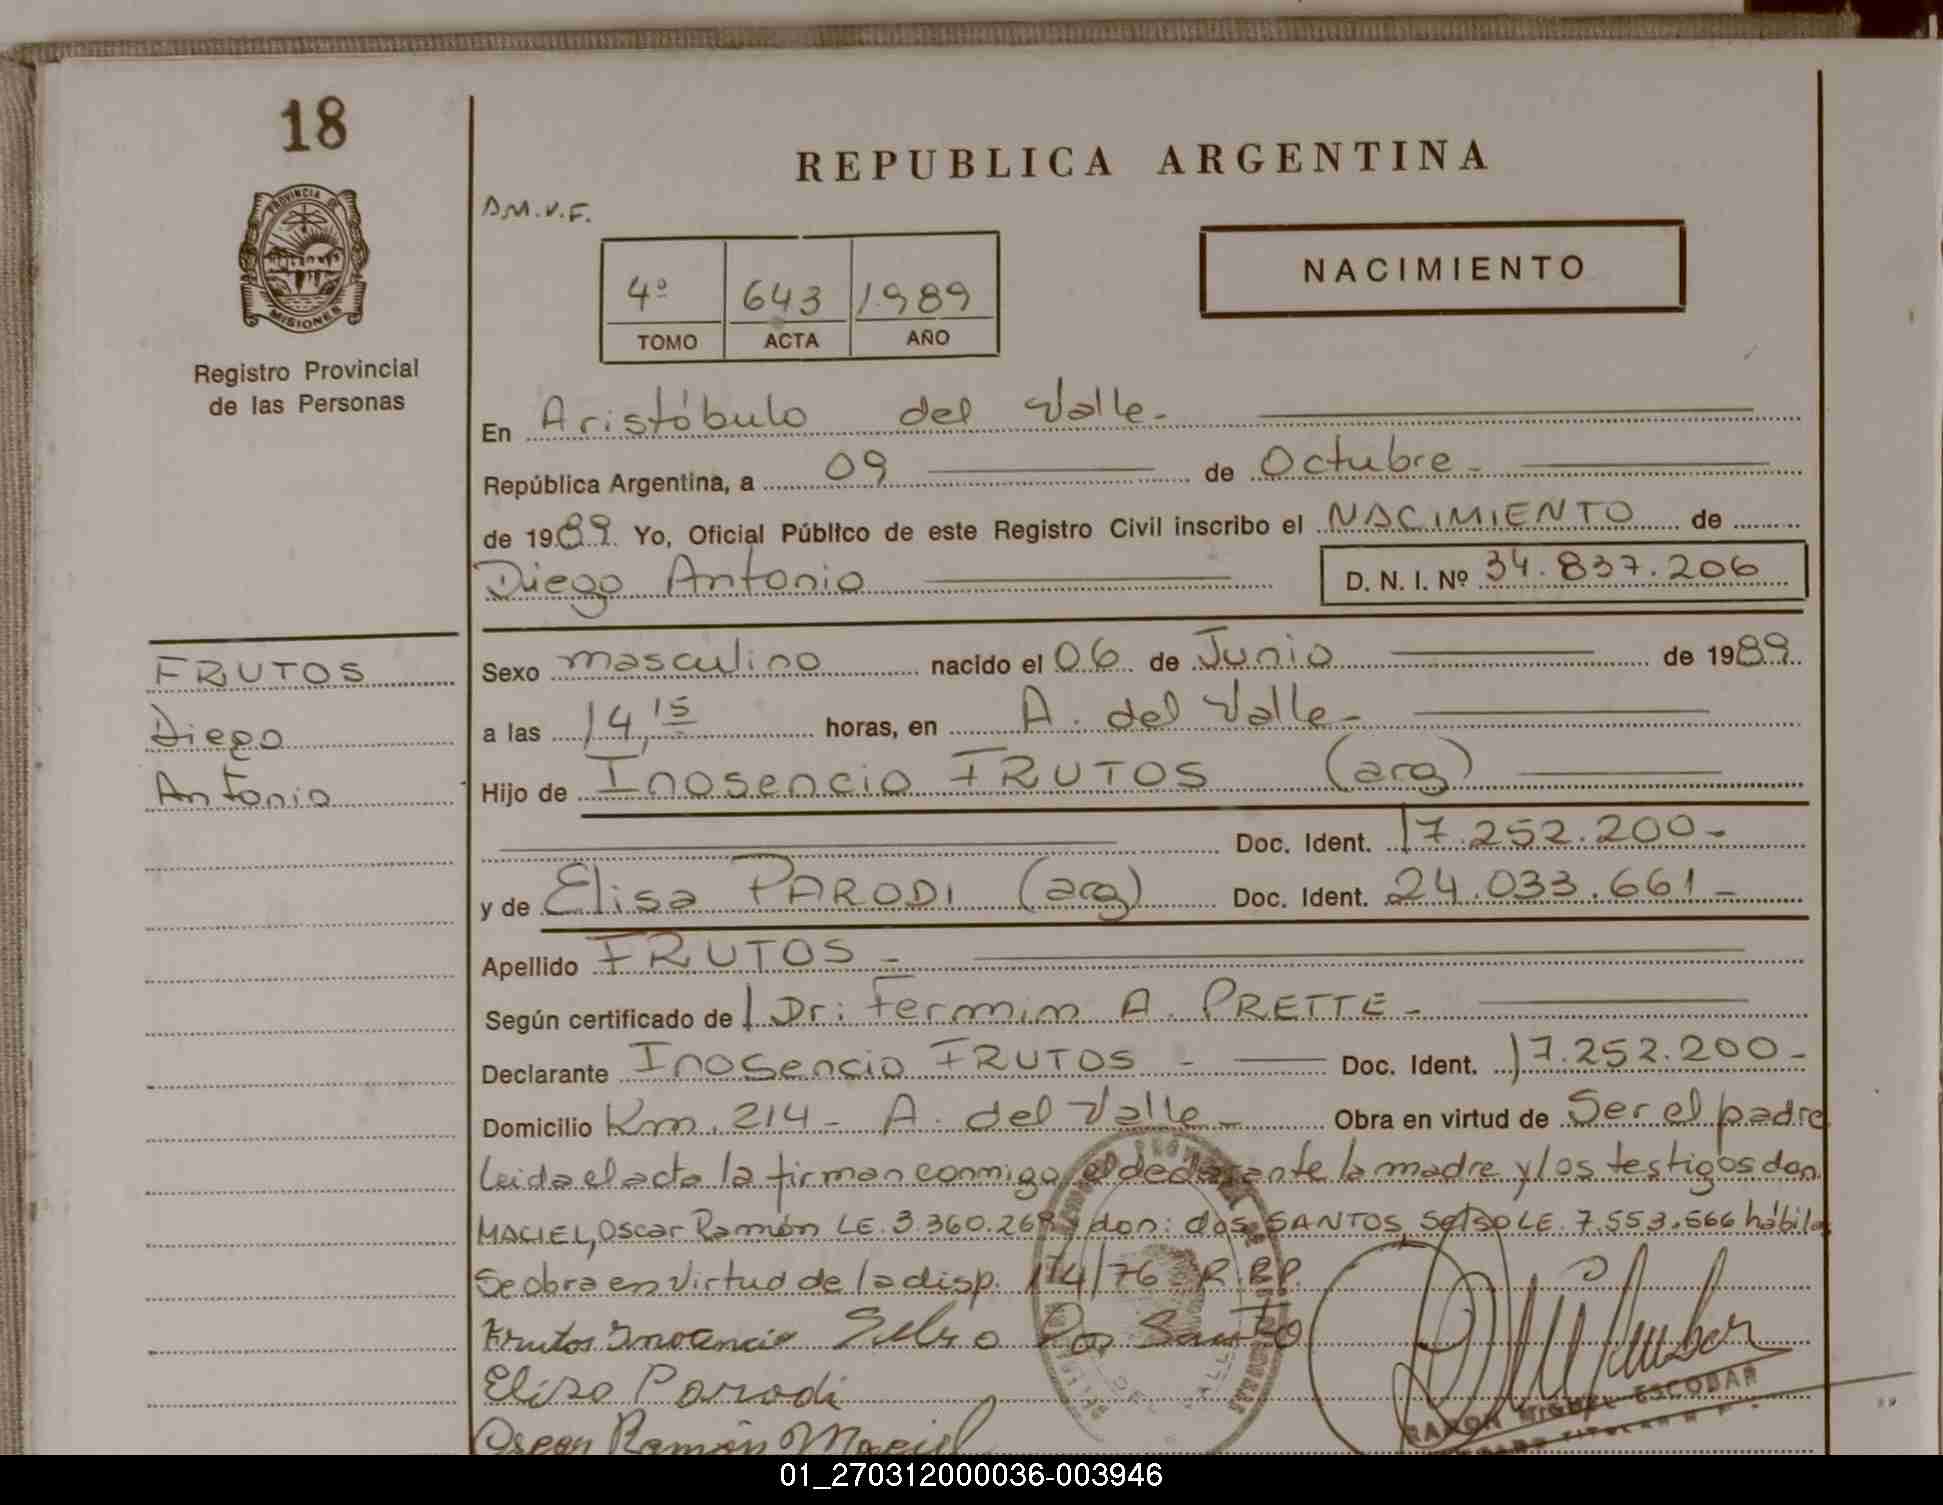 18
PROVINCIA DE
MISIONES
Registro Provincial
de las Personas
FRUTOS
Diego
Antonio
REPUBLICA ARGENTINA
D.M.V.F.
4º 643 1989
TOMO ACTA AÑO
NACIMIENTO
En Aristóbulo del Valle.-
República Argentina, a 09 de Octubre.-
de 1989. Yo, Oficial Público de este Registro Civil inscribo el NACIMIENTO de
Diego Antonio D. N. I. Nº 34.837.206
Sexo masculino nacido el 06 de Junio de 1989
a las 14,15 horas, en A. del Valle.-
Hijo de Inosencio FRUTOS (arg)
Doc. Ident. 17.252.200-
y de Elisa PARODI (arg) Doc. Ident. 24.033.661-
Apellido FRUTOS.-
Según certificado de Dr: Fermin A. PRETTE.-
Declarante Inosencio FRUTOS - Doc. Ident. 17.252.200-
Domicilio Km. 214- A. del Valle.- Obra en virtud de Ser el padre
Leida el acta la firman conmigo el declarante la madre y los testigos don
MACIEL, Oscar Ramón LE. 3.360.268 y don: dos SANTOS, Selso LE. 7.553.566 hábiles
Se obra en virtud de la disp. 114/76 R.P.P.
Frutos Inocencio Selso Dos Santo
Elisa Parodi
Oscar Ramón Maciel
RAMON MIGUEL ESCOBAR
01_270312000036-003946